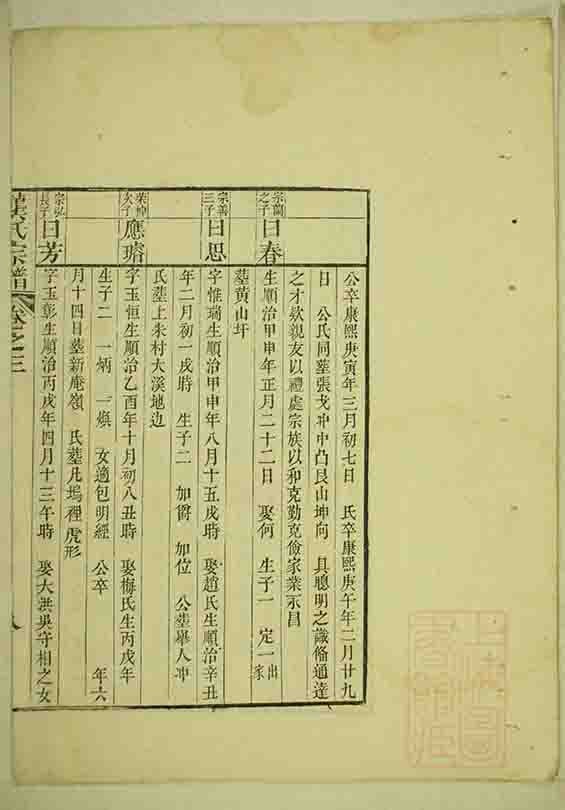 公卒康熙庚寅年三月初七日 氏卒康熙庚午年二月廿九
日 公氏同墓張戈冲中凸艮山坤向 具聰明之識偹通達
之才欵親友以禮處宗族以和克勤克儉家業永昌
宗蘭之子
日春
生順治甲申年正月二十二日 娶何 生子一 定一出家
墓黄山圩
宗善三子
日思
字惟瑞生順治甲申年八月十五戌時 娶趙氏生順治辛丑
年二月初一戌時 生子二 加爵 加位 公墓畢人冲
氏墓上朱村大溪地边
次子
應璿
字玉恒生順治乙酉年十月初八丑時 娶梅氏生丙戌年
生子二 一炳 一煥 女適包明經 公卒 年六
月十四日墓新庵嶺 氏墓凡塢裡虎形
宗弘長子
日芳
字玉彰生順治丙戌年四月十三午時 娶大洪吳守相之女
氏宗譜 卷之三
八
上海圖